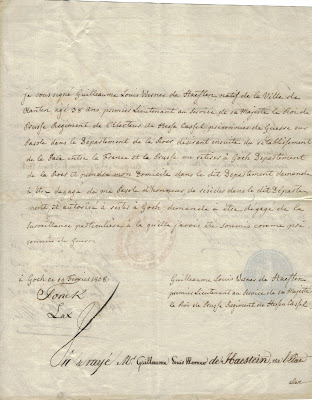 je soussigné Guillaume Louis Werner de Haeften natif de la Ville de
Xanten agé 38 ans premier Lieutenant au Service de sa Majesté le Roi de
Prusse Regiment de l'Electeur de Hesse Cassel prisonnier de Guerre sur
Parole dans le Departement de la Roer desirant ensuite du rétablissement
de la Paix entre la France et la Prusse me retirer à Goch Departement
de la Roer et prendre mon Domicile dans le dit Departement demande
à être degagé de ma Parole d'honneur de résider dans le dit Departe-
ment et autorisé a rester à Goch demande à être degagé de la
surveillance particuliere à la quelle j'avois été soumis comme pri-
sonnier de Guerre
à Goch ce 10 Fevrier 1808
Guillaume Louis Werner de Haeften
premier Lieutenant au service de sa Majesté
le Roi de Prusse Regiment de Hesse Cassel
rayé Mr. Guillaume Louis Werner de Haestein, de l'Etat